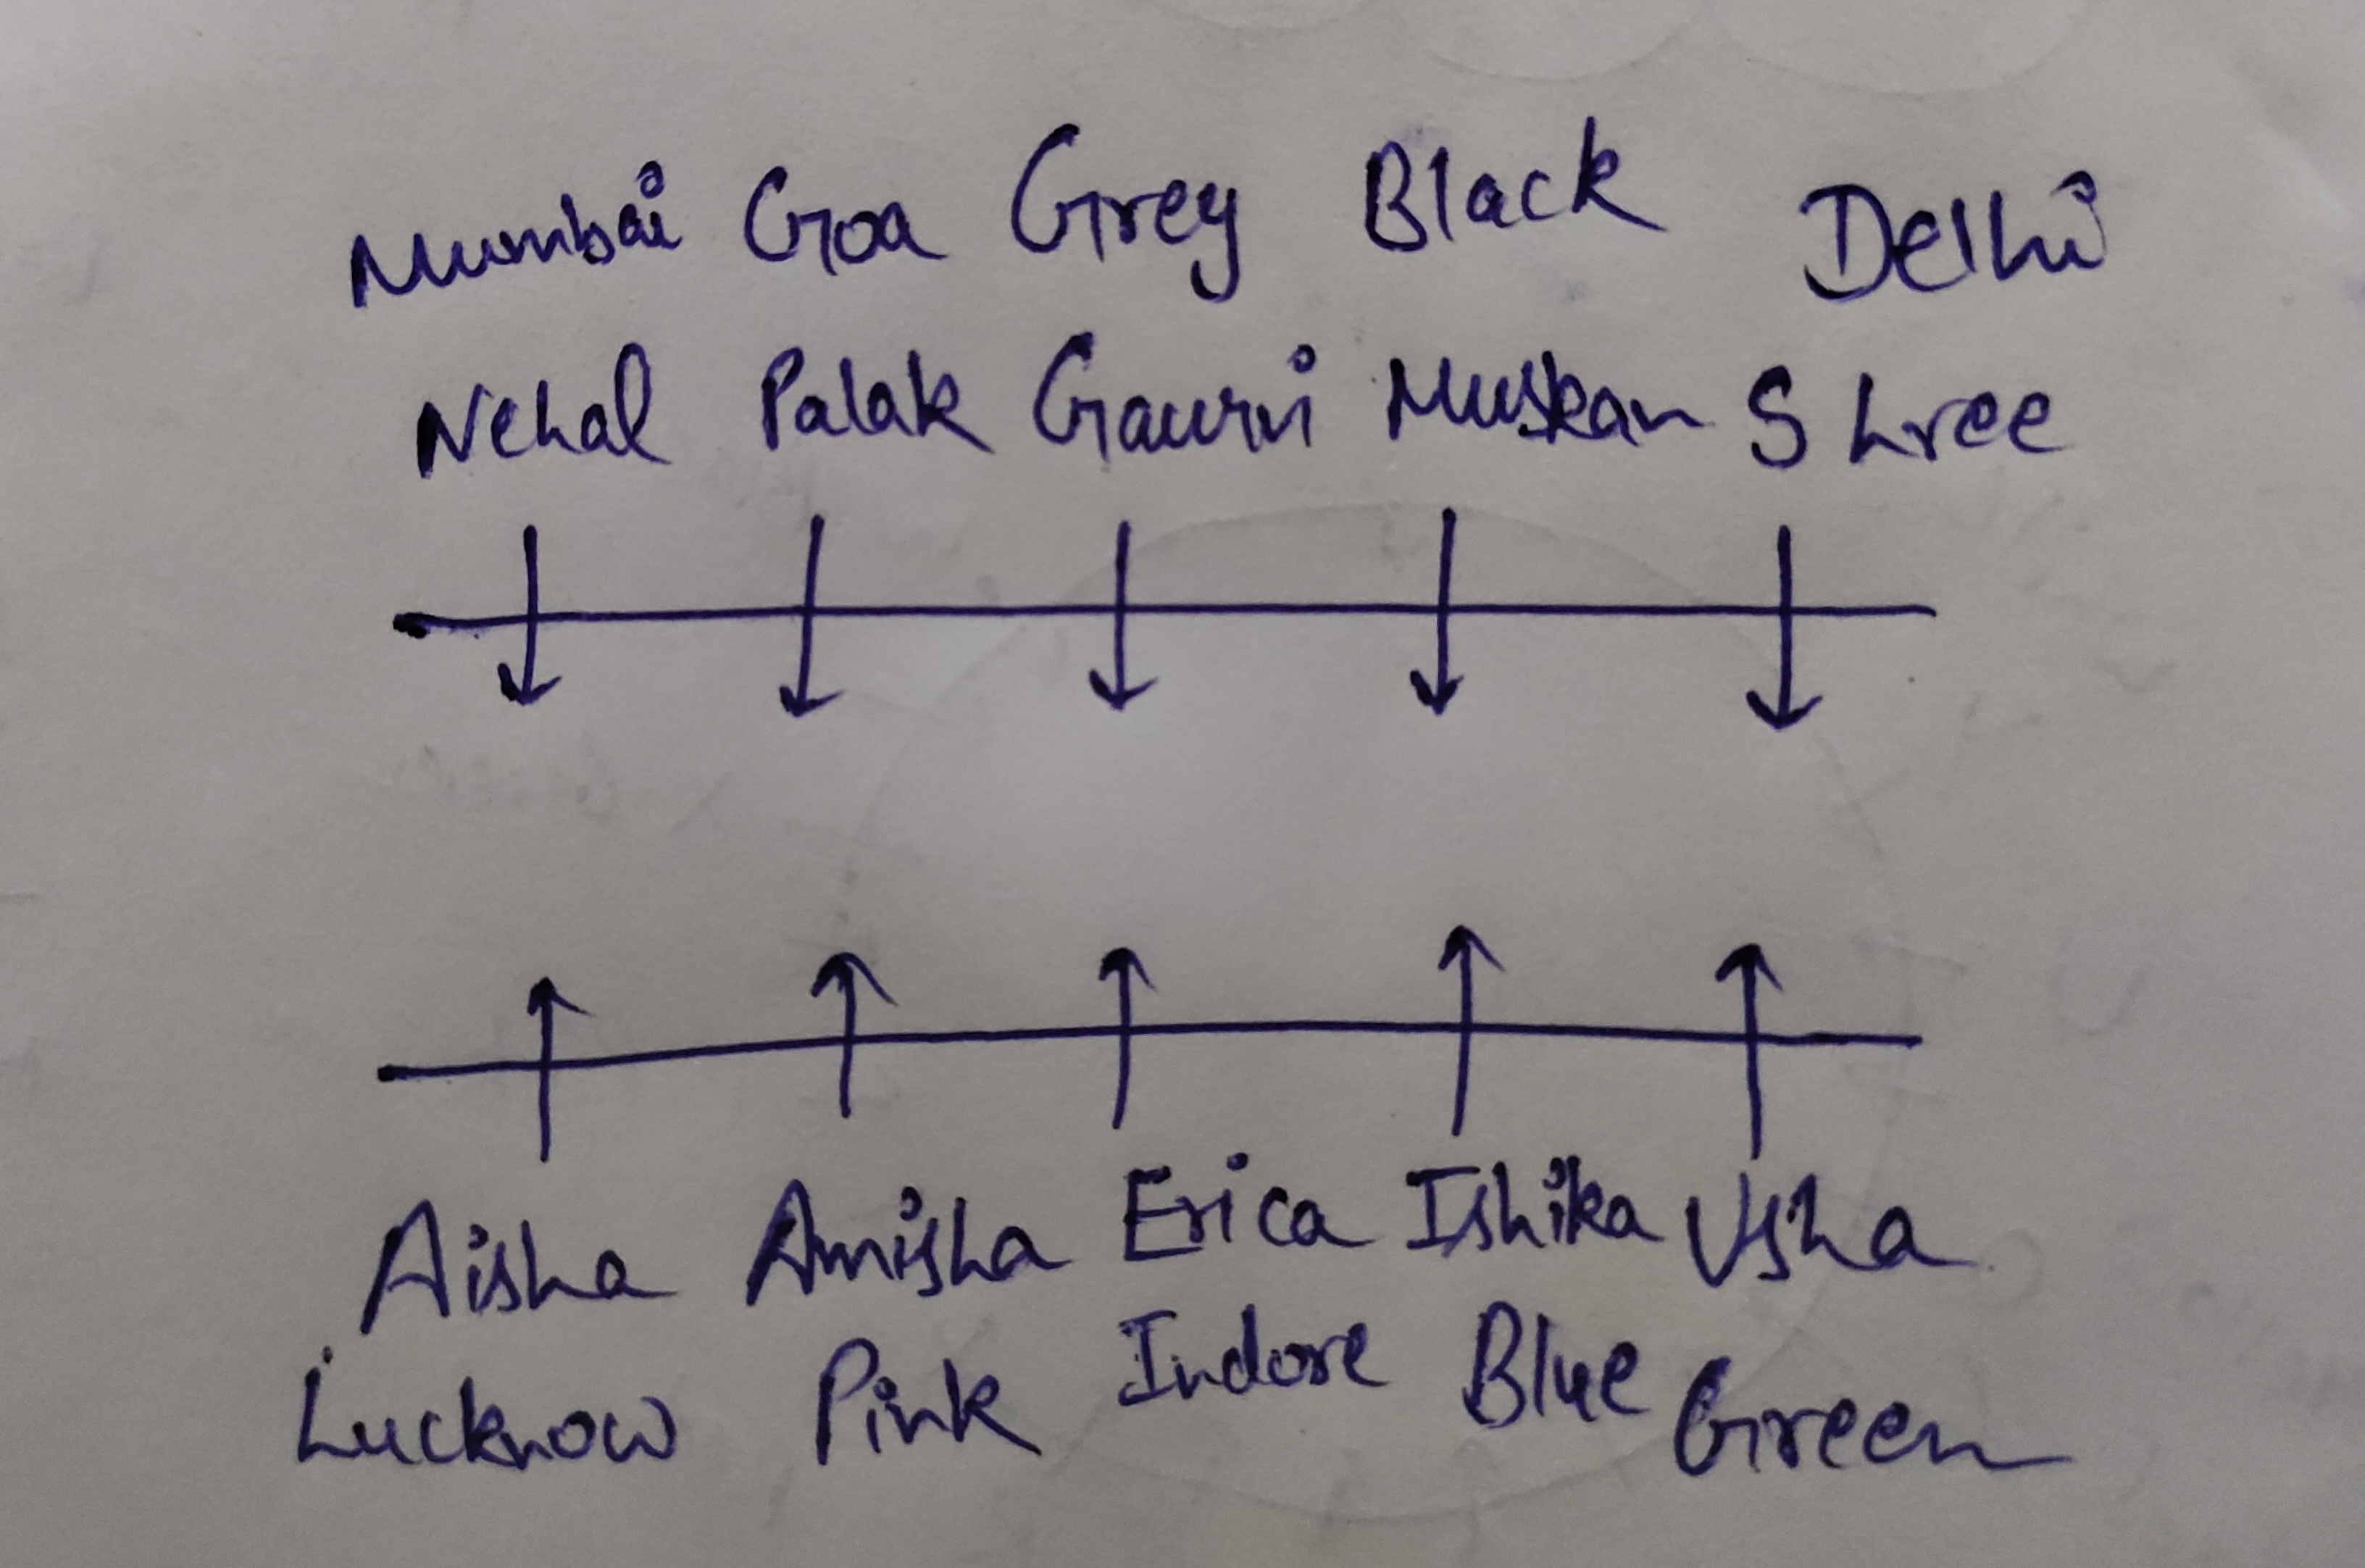 Mumbai Goa Grey Black Delhi
Nehal Palak Gauri Muskan Shree
Aisha Amisha Erica Ishika Usha
Lucknow Pink Indore Blue Green